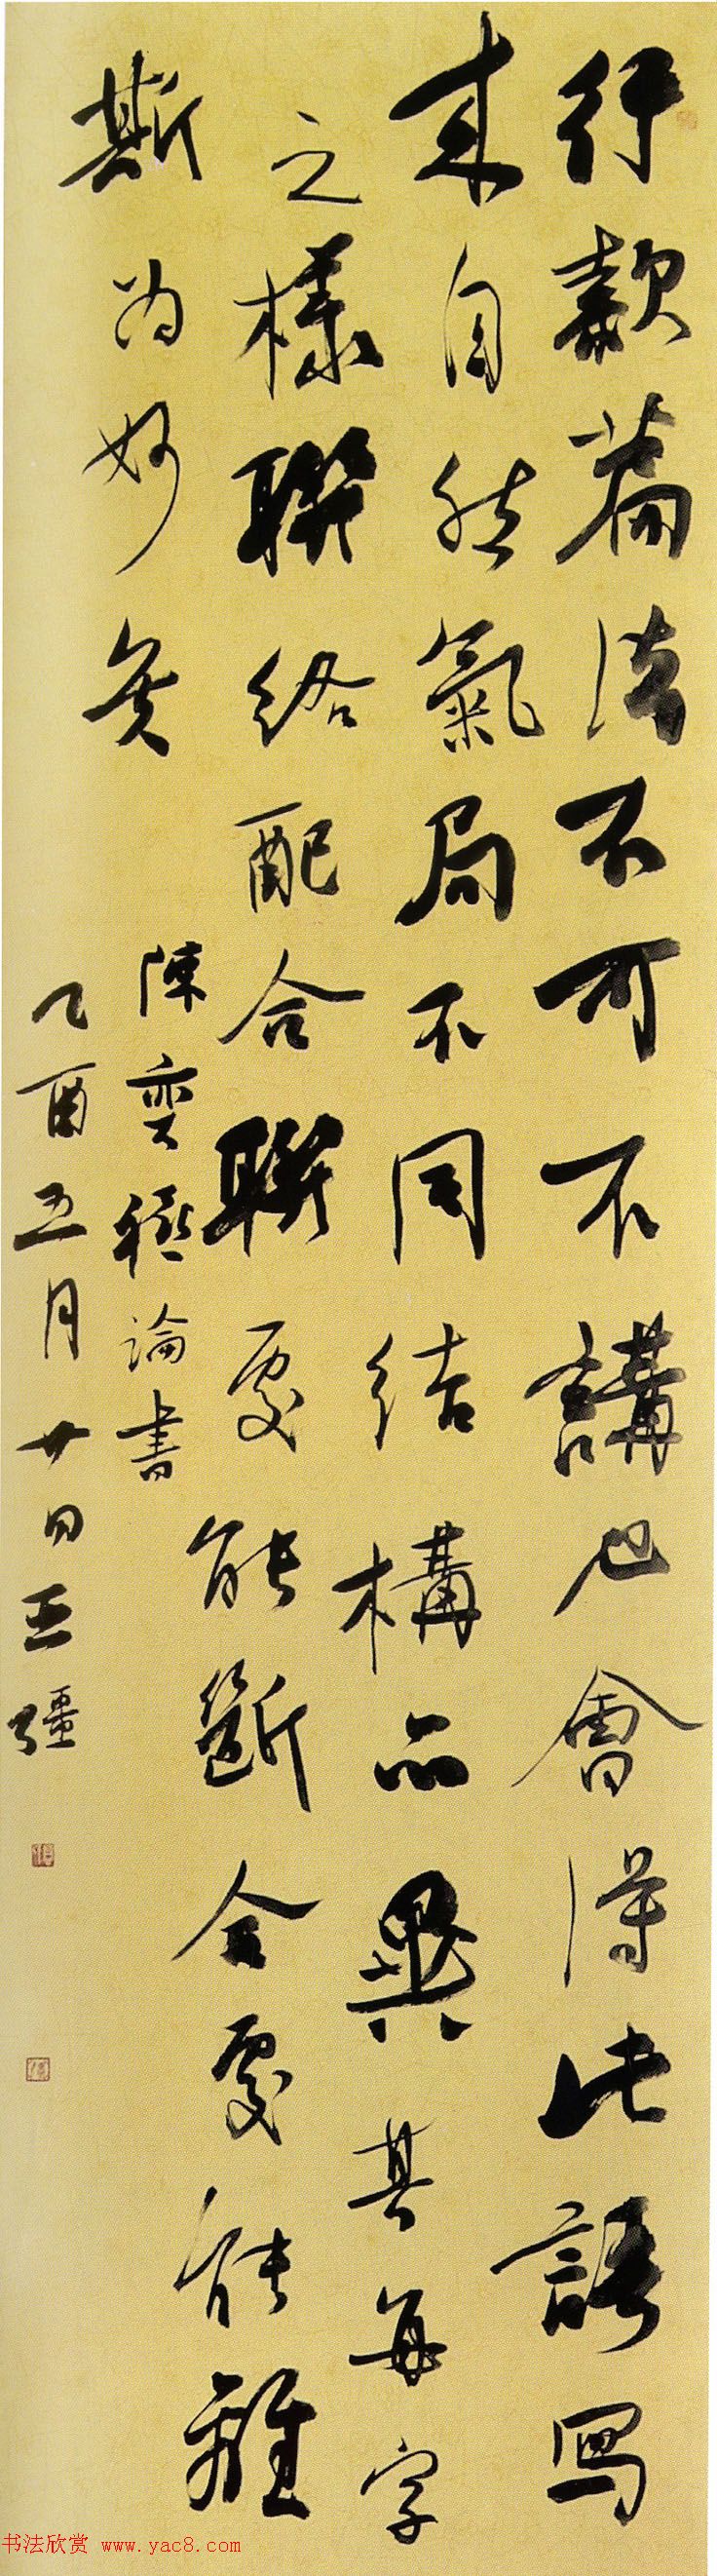 行款篇法不可不講也會得此語寫
來自然氣局不同結構亦異其每字
之樣聯絡配合聯處能斷合處能離
斯為妙矣
陳奕禧論書
乙酉五月廿日王彊
书法欣赏 www.yac8.com